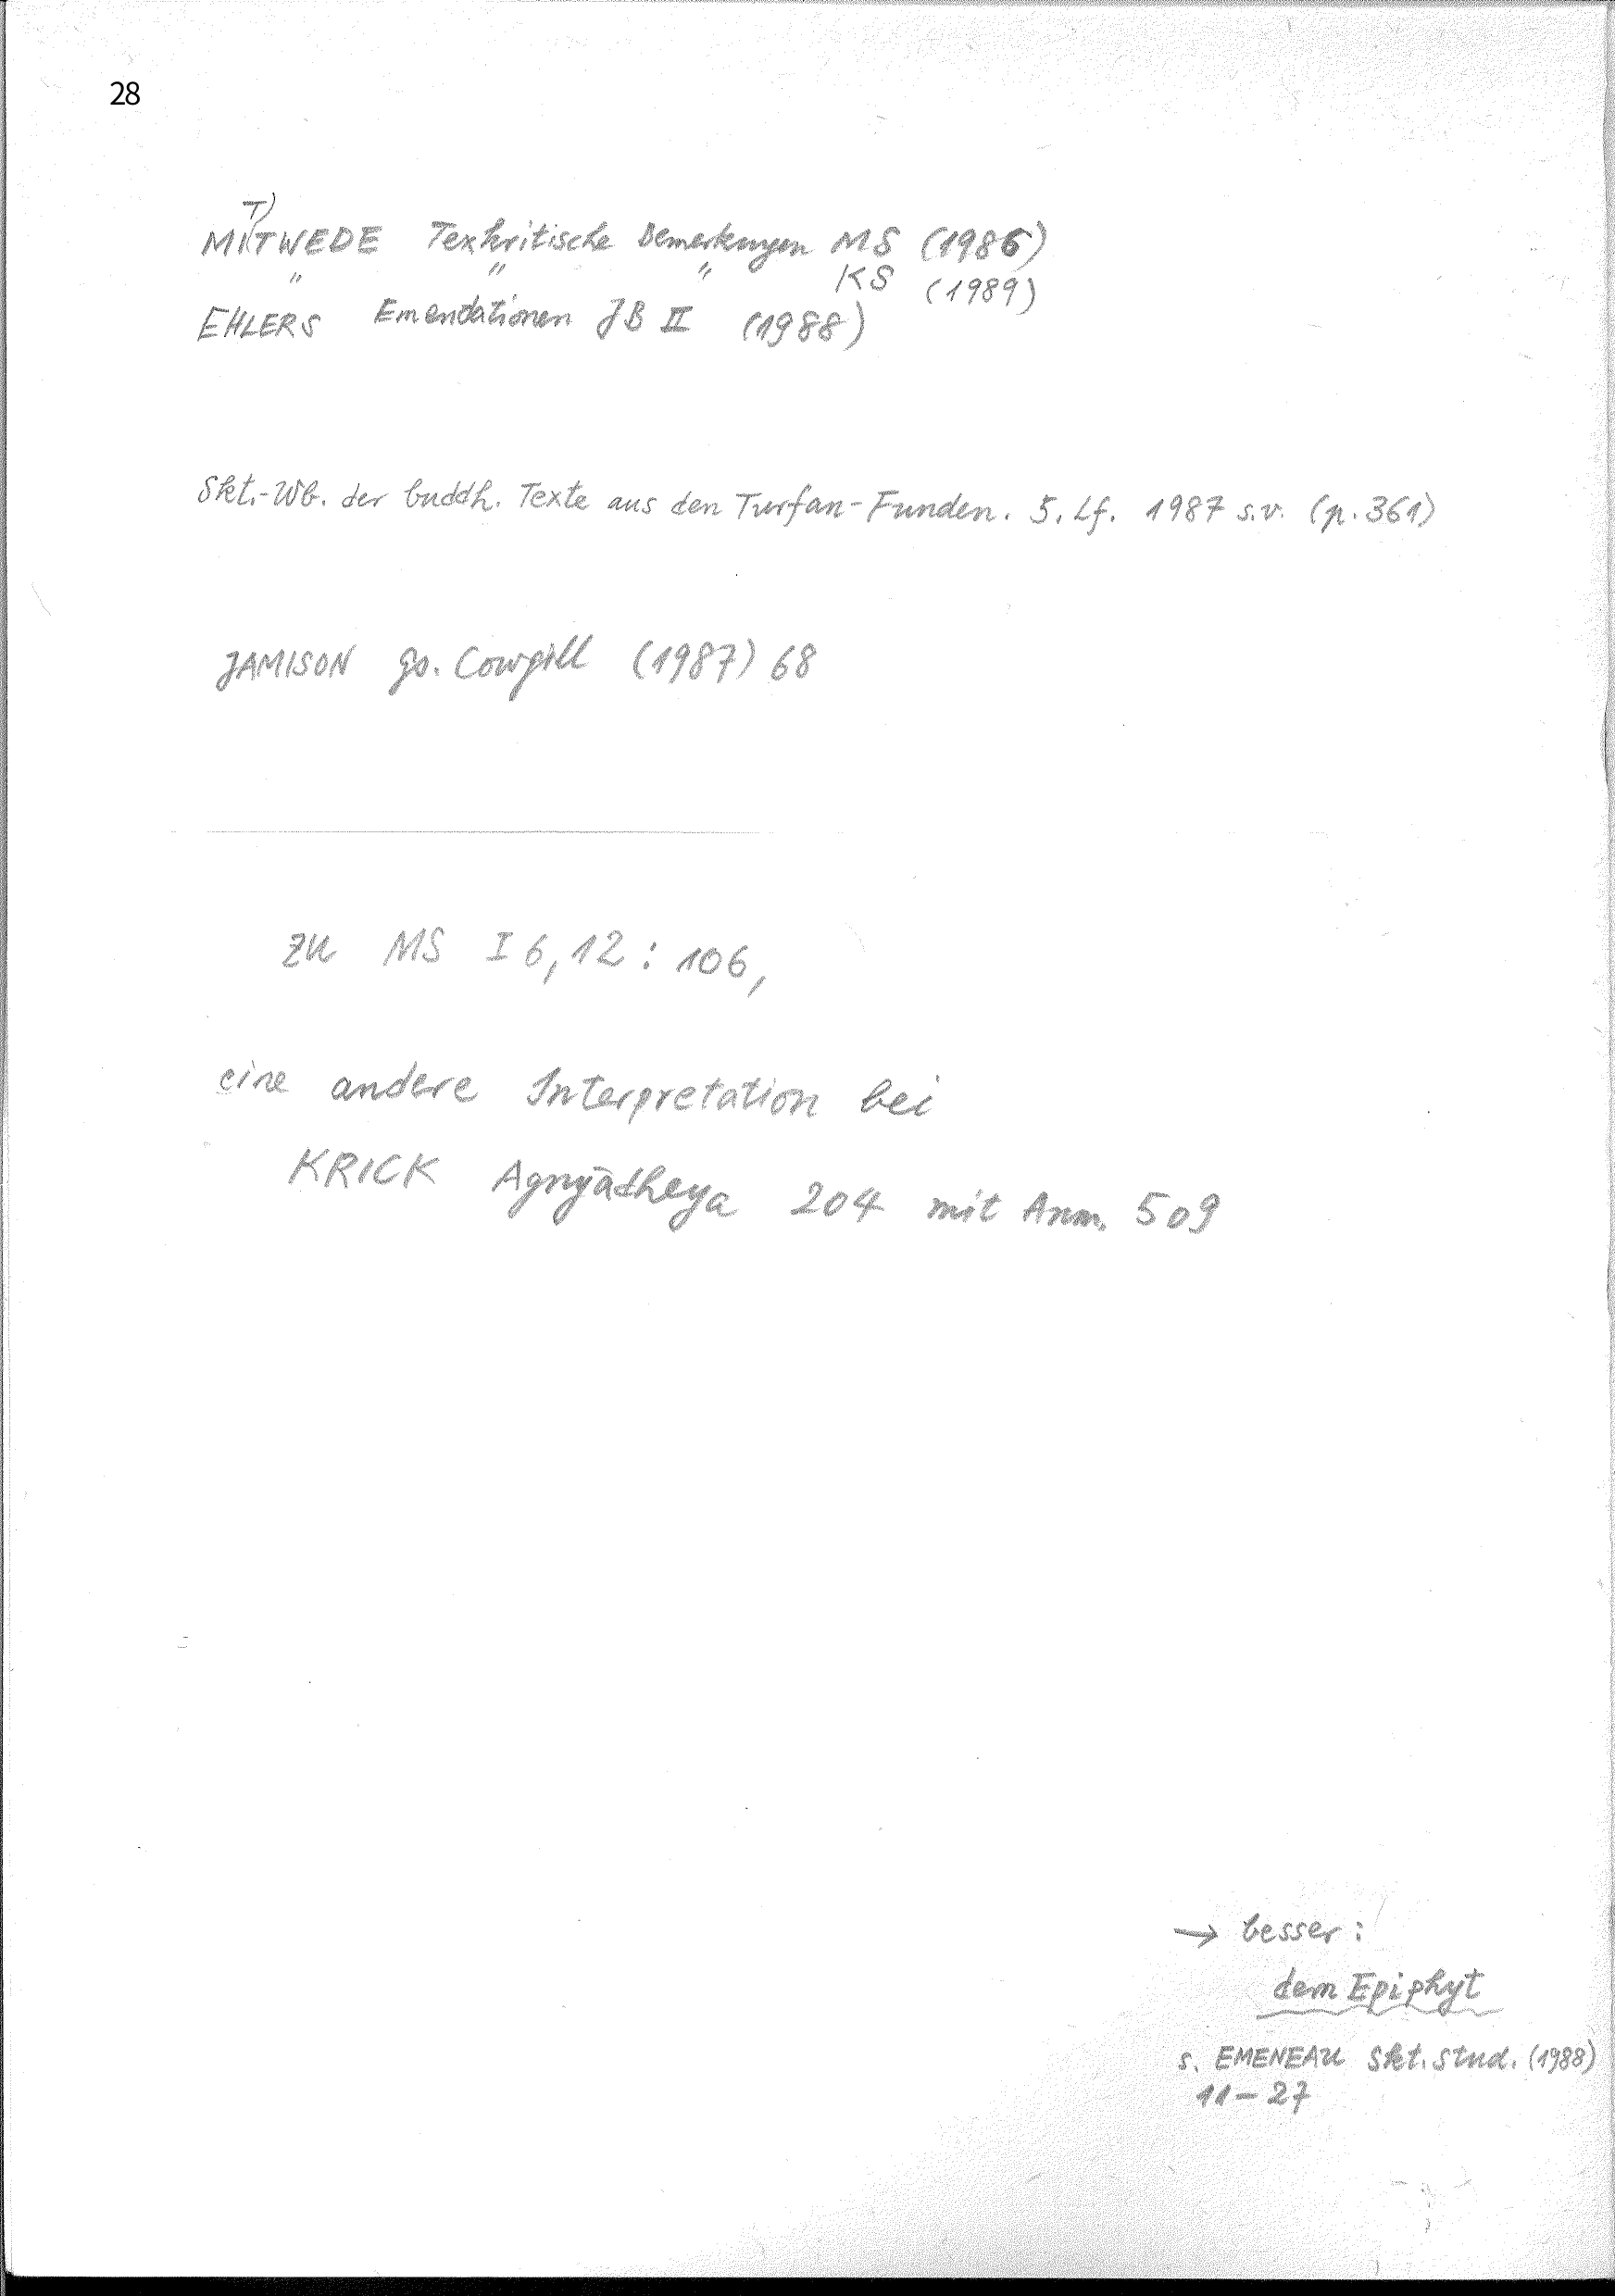 28
T)
MITWEDE Texkritische Bemerkungen MS (1986)
" " " KS (1989)
EHLERS Emendationen JB II (1988)
Skt.-Wb. der buddh. Texte aus den Turfan-Funden. 5. Lf. 1987 s.v. (p. 361)
JAMISON gs. Cowgill (1987) 68
zu MS I 6,12 : 106,
eine andere Interpretation bei
KRICK Agnyādheya 204 mit Anm. 509
→ besser :
dem Epiphyt
s. EMENEAU Skt. stud. (1988)
11-27